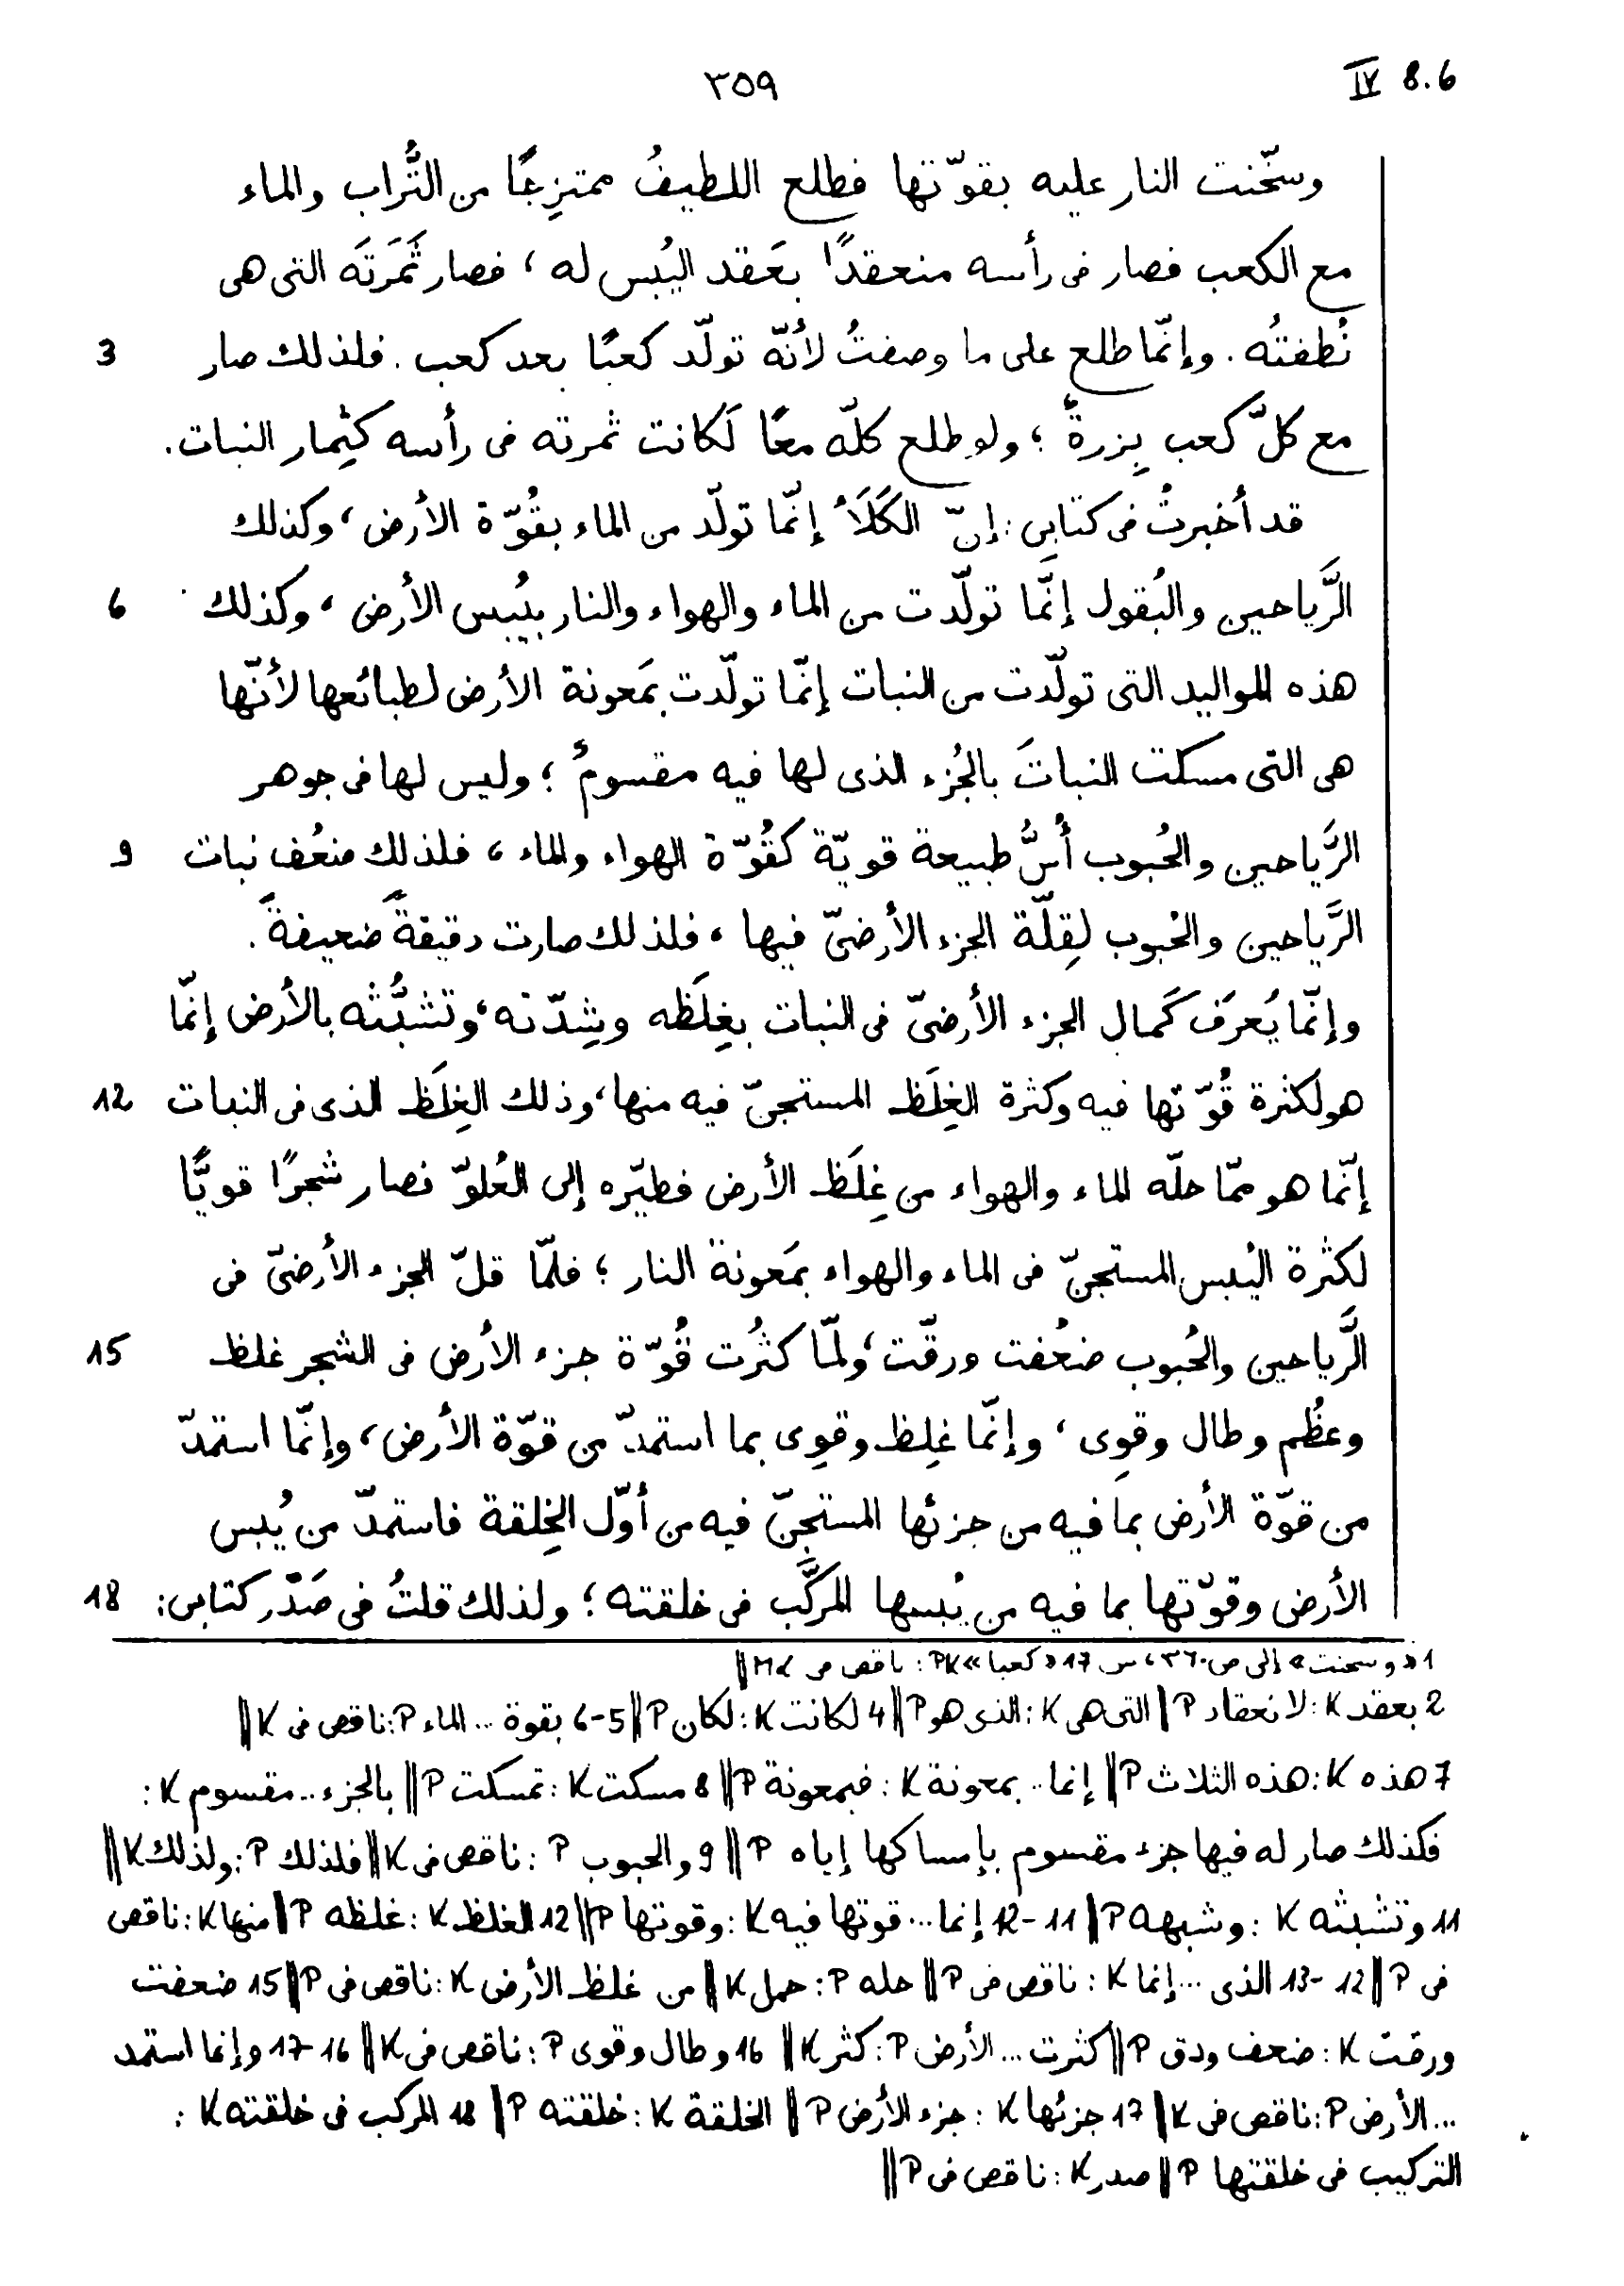 IV 8.6
٣٥٩
وسخّنت النار عليه بقوّتها فطلع اللطيفُ ممتزِجًا من التُّراب والماء
مع الكعب فصار فى رأسه منعقدًا بعَقد اليُبس له ، فصار ثَمَرتَه التى هى
3 نُطفتُه . وإنّما طلع على ما وصفتُ لأنّه تولّد كعبًا بعد كعب . فلذلك صار
مع كلّ كعب بِزرةٌ ؛ ولو طلع كلّه معًا لَكانت ثمرته فى رأسه كثِمار النبات .
قد أخبرتُ فى كتابى : إنّ الكَلَأ إنّما تولّد من الماء بقُوّة الأرض ، وكذلك
6 الرَّياحين والبُقول إنَّما تولّدت من الماء والهواء والنار بيُبس الأرض ، وكذلك
هذه المواليد التى تولّدت من النبات إنّما تولّدت بمَعونة الأرض لطبائعها لأنّها
هى التى مسكت النباتَ بالجُزء الذى لها فيه مقسومٌ ؛ وليس لها فى جوهر
9 الرَّياحين والحُبوب أُسُّ طبيعة قويّة كقُوّة الهواء والماء ، فلذلك ضعُف نبات
الرَّياحين والحُبوب لِقِلّة الجزء الأرضىّ فيها ، فلذلك صارت دقيقةً ضعيفةً .
وإنّما يُعرَف كَمال الجزء الأرضىّ فى النبات بغِلَظه وشِدّته ، وتَشبُّثُه بالأرض إنّما
12 هو لكثرة قُوّتها فيه وكثرة الغِلَظ المستجنّ فيه منها ، وذلك الغِلَظ الذى فى النبات
إنّما هو ممّا حلّه الماء والهواء من غِلَظ الأرض فطيّره إلى العُلوّ فصار شجرًا قويًّا
لكثرة اليُبس المستجنّ فى الماء والهواء بمَعونة النار ؛ فلمّا قلّ الجزء الأرضىّ فى
15 الرَّياحين والحُبوب ضعُفت ورقّت ، ولمّا كثُرت قُوّة جزء الأرض فى الشجر غلظ
وعظُم وطال وقوِى ، وإنّما غلِظ وقوِى بما استمدّ من قوّة الأرض ، وإنّما استمدّ
من قوّة الأرض بما فيه من جزئها المستجنّ فيه من أوّل الخِلقة فاستمدّ من يُبس
18 الأرض وقوّتها بما فيه من يُبسها المركَّب فى خلقته ؛ ولذلك قلتُ فى صَدْر كتابى :
1 «وسخنت» إلى ص ٣٦٠، س 17 «كعبا» PK : ناقص فى ML ||
2 بعقد K : لانعقاد P || التى هى K : الذى هو P || 4 لكانت K : لكان P || 5-6 بقوة ... الماء P : ناقص فى K ||
7 هذه K : هذه الثلاث P || إنما .. بمعونة K : فبمعونة P || 8 مسكت K : تمسكت P || بالجزء .. مقسوم K :
فكذلك صار له فيها جزء مقسوم بإمساكها إياه P || 9 والحبوب P : ناقص فى K || فلذلك P : ولذلك K ||
11 وتشبثه K : وشبهه P || 11-12 إنما ... قوتها فيه K : وقوتها P || 12 الغلظ K : غلظه P || منها K : ناقص
فى P || 12-13 الذى ... إنما K : ناقص فى P || حله P : حمل K || من غلظ الأرض K : ناقص فى P || 15 ضعفت
ورقت K : ضعف ودق P || كثرت ... الأرض P : كثر K || 16 وطال وقوى P : ناقص فى K || 16-17 وإنما استمد
... الأرض P : ناقص فى K || 17 جزئها K : جزء الأرض P || الخلقة K : خلقته P || 18 المركب فى خلقته K :
التركيب فى خلقتها P || صدر K : ناقص فى P ||